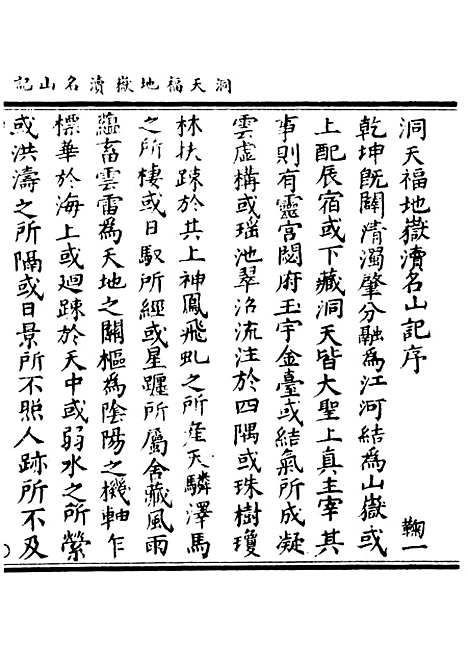 洞天福地嶽瀆名山記
洞天福地嶽瀆名山記序
鞠一
乾坤旣闢淸濁肇分融爲江河結爲山嶽或
上配辰宿或下藏洞天皆大聖上真主宰其
事則有靈宮閟府玉宇金臺或結氣所成凝
雲虛構或瑤池翠沼流注於四隅或珠樹瓊
林扶踈於其上神鳳飛虬之所産天驎澤馬
之所棲或日馭所經或星躔所屬含藏風雨
蘊畜雲雷爲天地之關樞爲陰陽之機軸乍
標華於海上或迴踈於天中或弱水之所縈
或洪濤之所隔或日景所不照人跡所不及